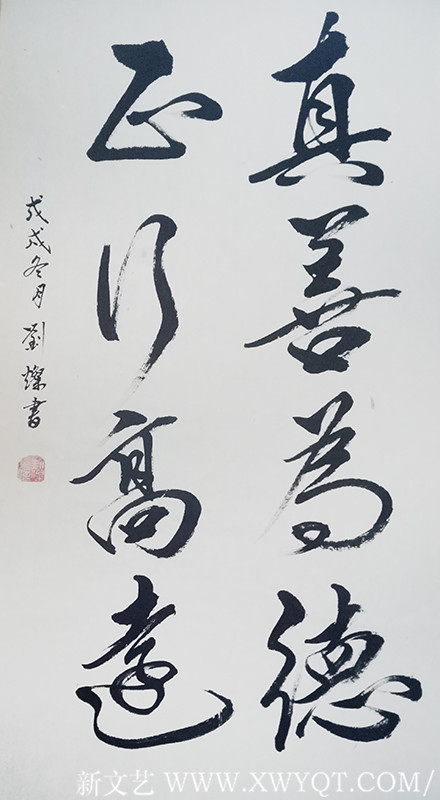 真善為德
正行高達
戊戌冬月 劉燦書
新文艺 WWW.XWYQT.COM/